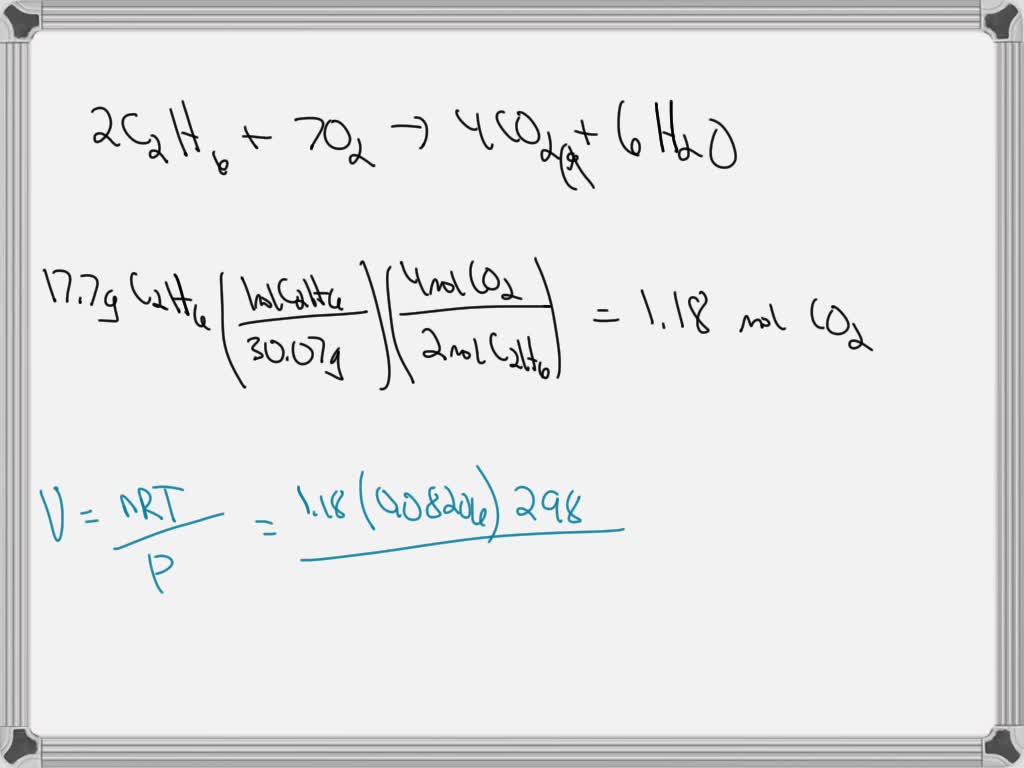 2C₂H₆ + 7O₂ → 4CO₂(g) + 6H₂O
17.7g C₂H₆ (1molC₂H₆/30.07g)(4molCO₂/2molC₂H₆) = 1.18 mol CO₂
V = nRT/P = 1.18(0.08206)298